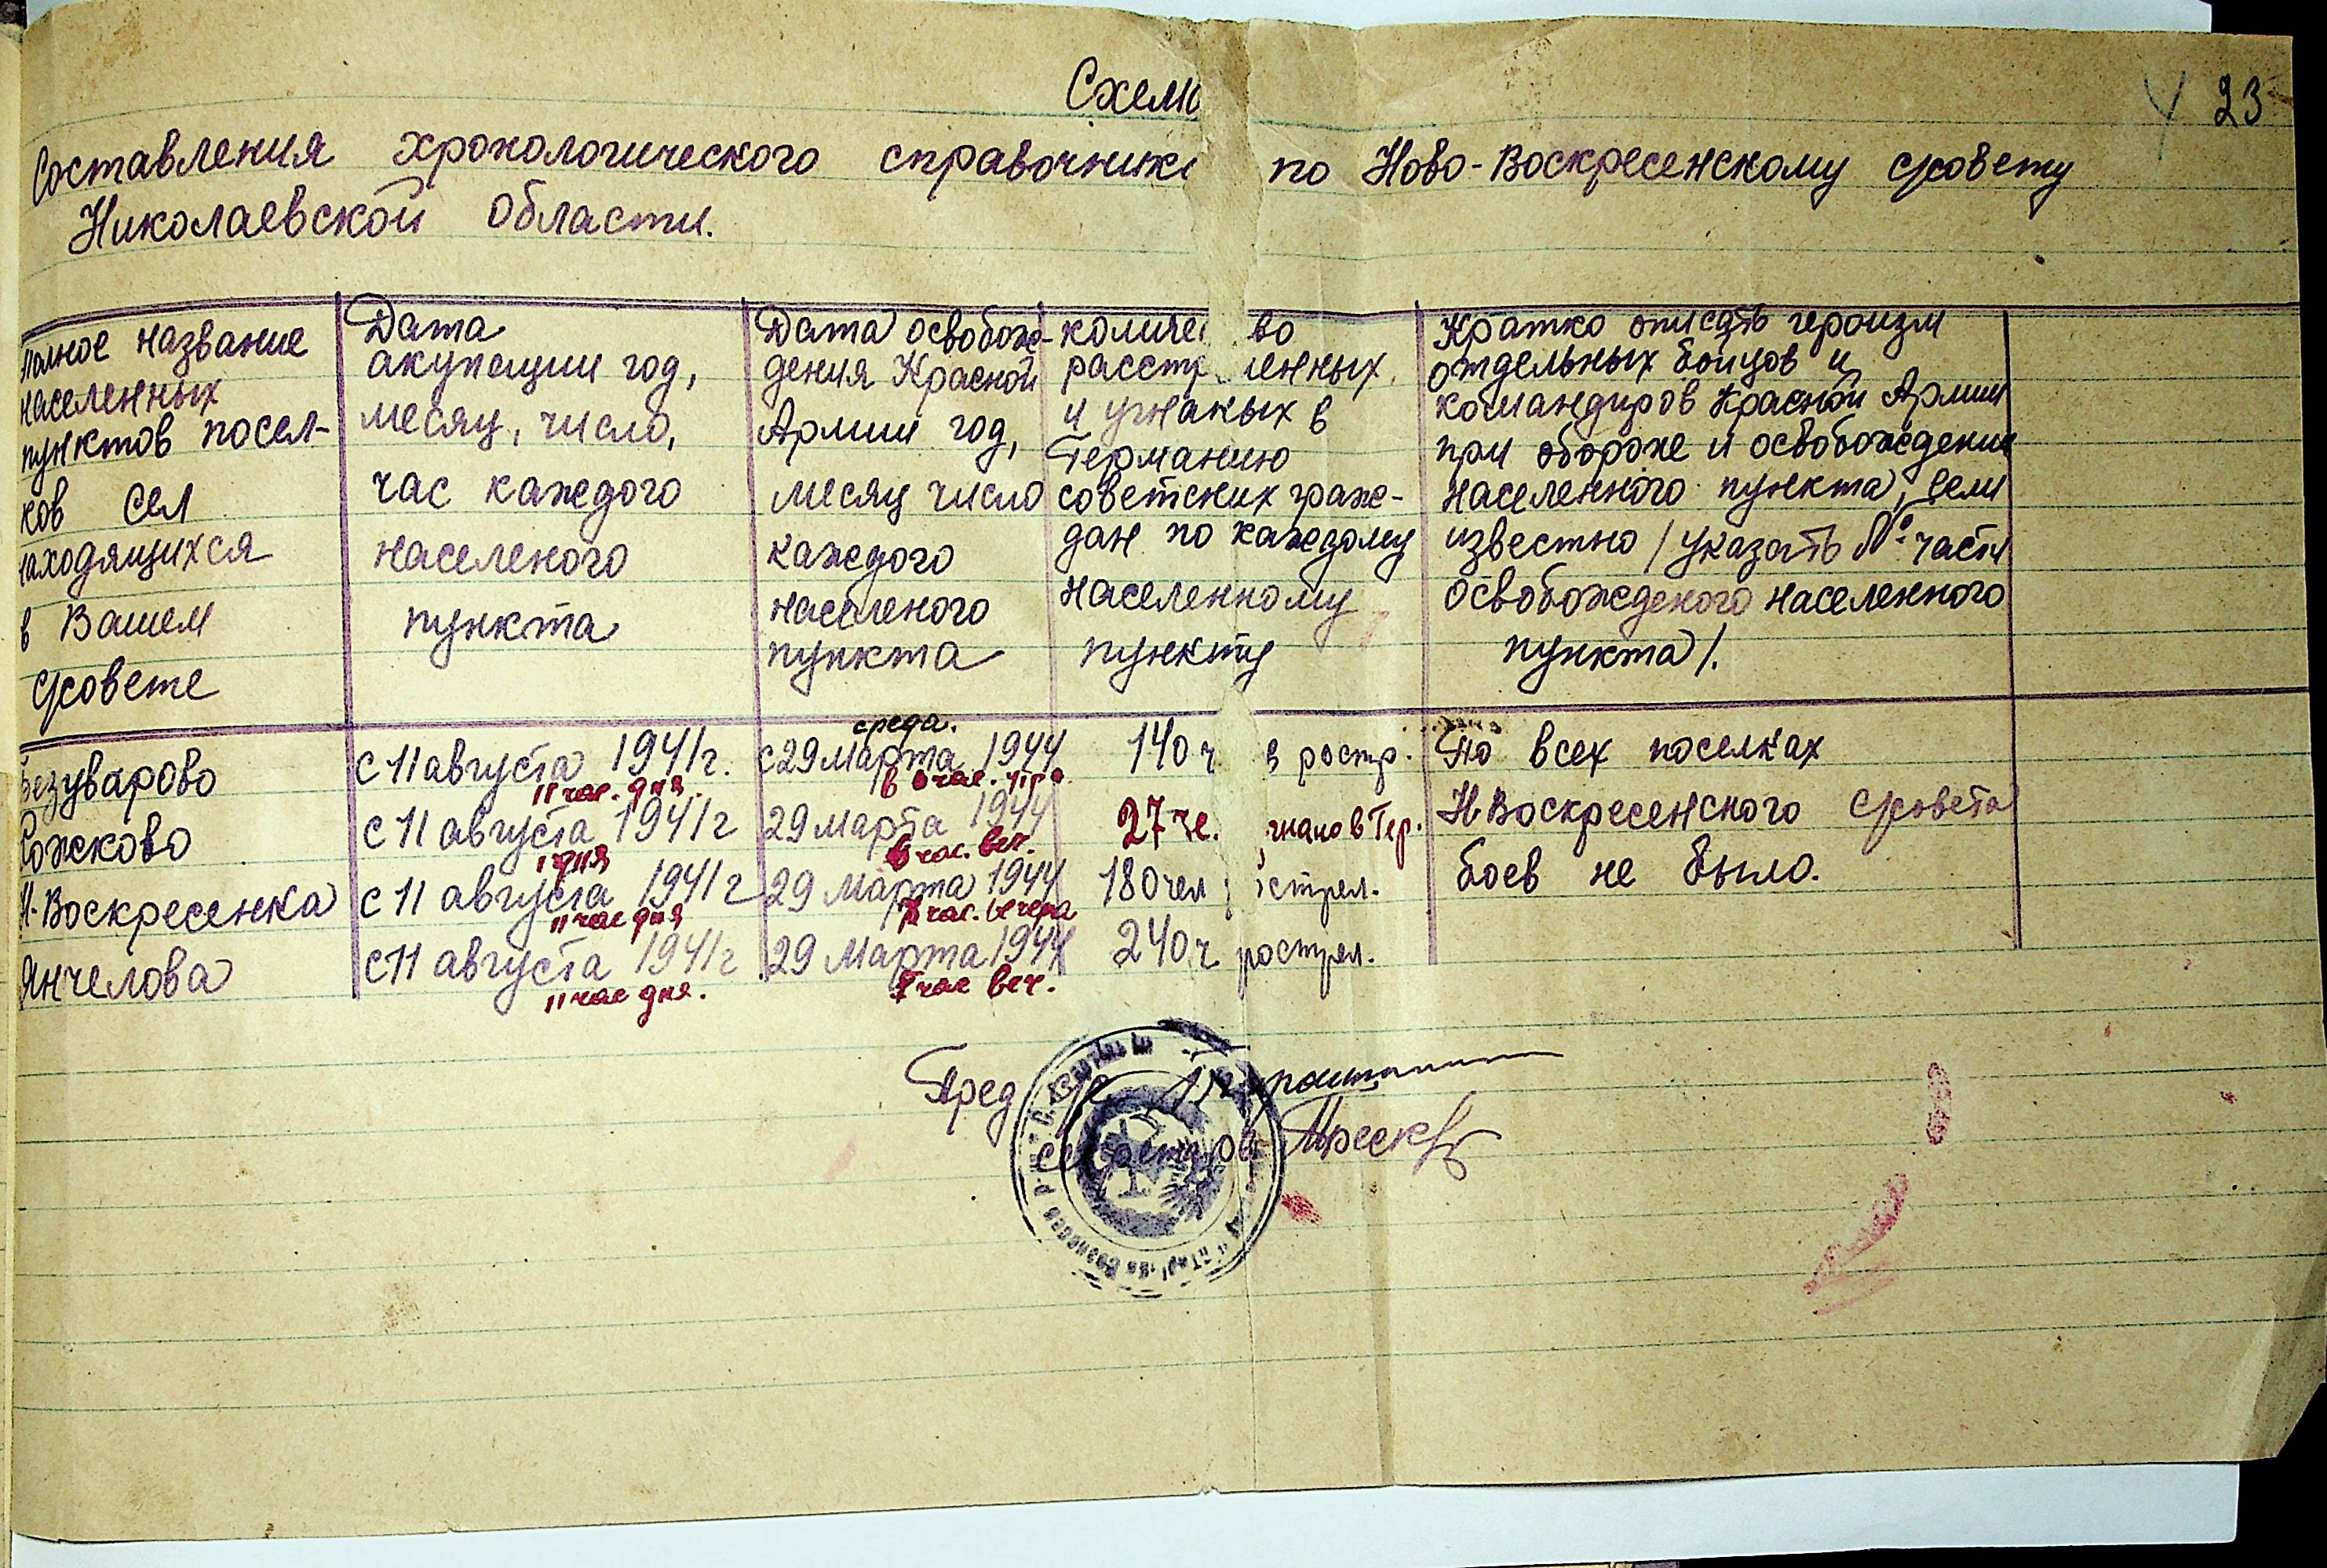 23
Схема
Составления хронологического справочника по Ново-Воскресенскому с/совету
Николаевской области.
Полное название
населенных
пунктов посел-
ков сел
находящихся
в Вашем
с/совете
Дата
акупации год,
месяц, число,
час каждого
населеного
пункта
Дата освобож-
дения Красной
Армии год,
месяц число
каждого
населеного
пункта
количество
расстреленных
и угнаных в
Германию
советских граж-
дан по каждому
населенному
пункту
Кратко описать героизм
отдельных бойцов и
командиров Красной Армии
при обороне и освобождении
населенного пункта, если
известно /указать № части
освобожденого населенного
пункта/.
Безуварово
с 11 августа 1941 г.
11 час. дня.
среда.
с 29 марта 1944
140 ч в ростр.
По всех поселках
Н-Воскресенсного с/совета
боев не было.
с 11 августа 1941 г
дня
29 марта 1944
час. веч.
27 че. в Гер.
Н-Воскресенка
с 11 августа 1941 г
11 час дня
29 марта 1944
7 час. вечера
180 чел
Янчелова
с 11 августа 1941 г
11 час дня.
29 Марта 1944
7 час веч.
240 ч рострел.
Пред с/с
секретарь